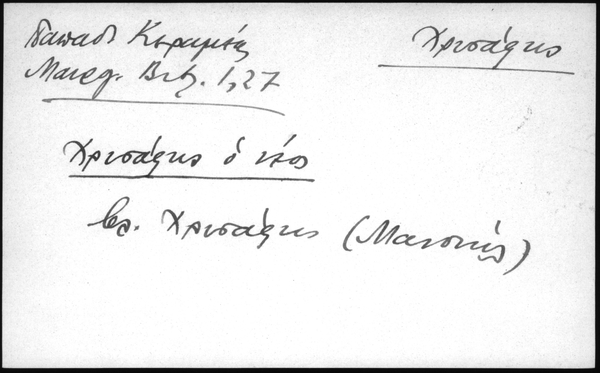 Παπαδ. Κεραμεύς
Μαυρ. Βιβ. 1, 27
Χρυσάφης
Χρυσάφης ὁ νέος
βλ. Χρυσάφης (Μανουήλ)